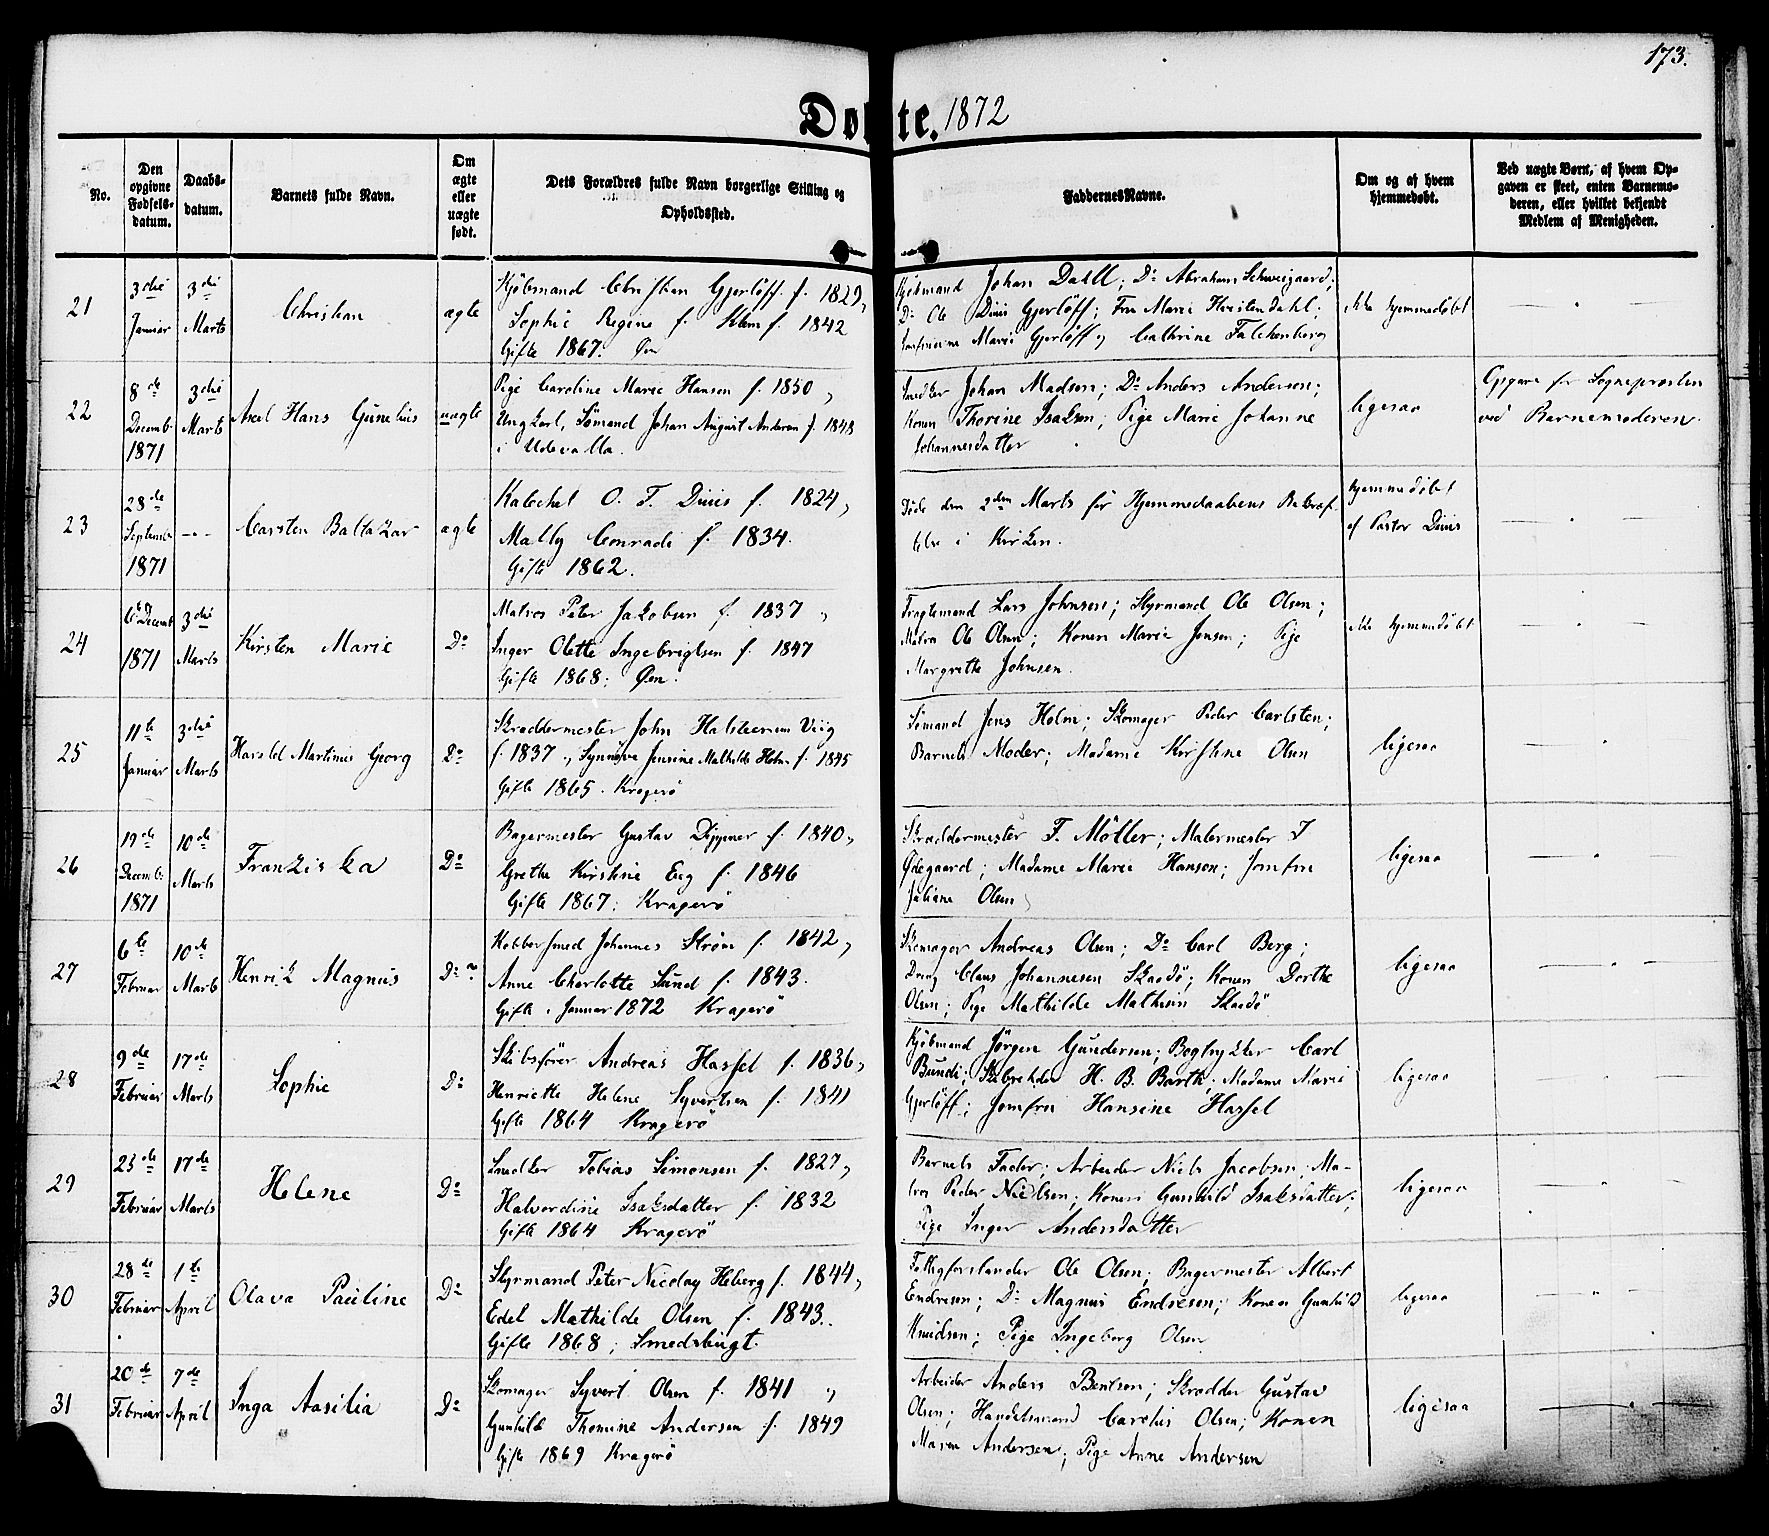 173.
Døbte. 1872
No.
Den opgivne Fødsels-datum.
Daabs-datum.
Barnets fulde Navn.
Om ægte eller uægte født.
Dets Forældres fulde Navn borgerlige Stilling og Opholdssted.
Faddernes Navne.
Om og af hvem hjemmedøbt.
Ved uægte Børn, af hvem Opgaven er skeet, enten Barnemoderen, eller hvilket bekjendt Medlem af Menigheden.
21
3die Januar
3die Marts
Christian
ægte
Kjøbmand Christian Gjerløff f. 1829,
Sophie Regine f. 1842
Gifte 1867.
Kjøbmand Johan Dahll; Do Abraham Schweigaard;
Do Ole Diuis Gjerløff; Fru Marie Kirstin Dahl;
Marie Gjerløff og Cathrine Falckenberg
ikke hjemmedøbt
22
8de Decemb. 1871
3die Marts
Axel Hans Gunelius
uægte
Pige Caroline Marie Hansen f. 1850,
Ungkarl, Sömand Johan August Andersen f. 1848
i Udevalla.
Snedker Johan Madsen; Do Anders Andersen;
Konen Thorine Isaksen; Pige Marie Johanne
Johannesdatter
ligesaa
Opgave for Sognepræsten
ved Barnemoderen.
23
28de Septembr 1871
Carsten Baltazar
ægte
Katechet O. T. Diuis f. 1824,
Mally Conradi f. 1834.
Gifte 1862.
Døde den 2den Marts før Hjemmedaabens Bekræf-
telse i Kirken.
hjemmedøbt
af Pastor Diuis
24
6te Decemb 1871
3die Marts
Kirsten Marie
Do
Matros Peter Jakobsen f. 1837,
Inger Olette Ingebrigtsen f. 1847
Gifte 1868; Øen.
Fragtemand Lars Johnsen; Styrmand Ole Olsen;
Matros Ole Olsen; Konen Marie Jensen; Pige
Margrethe Johnsen.
ikke hjemmedøbt
25
11te Januar
3die Marts
Harald Martinius Georg
Do
Skræddermester John Halsteensen Viig
f. 1837, Synnøve Jensine Mathilde Holm f. 1845
Gifte 1865. Kragerö
Sömand Jens Holm; Skomager Peder Carlsten;
Barnets Moder; Madame Kirstine Olsen
ligesaa
26
19de Decemb. 1871
10de Marts
Franziska
Do
Bagermester Gustav Dippner f. 1840,
Grethe Kirstine Eeg f. 1846
Gifte 1867; Kragerö
Skræddermester F. Möller; Malermester J
Ødegaard; Madame Marie Hansen; Jomfru
Juliane Olsen
ligesaa
27
6te Februar
10de Marts
Henrik Magnus
Do
Kobbersmed Johannes Strøm f. 1842,
Anne Charlotte Lund f. 1843.
Gifte Januar 1872 Kragerö
Skomager Andreas Olsen; Do Carl Berg;
Dreng Claus Johannesen Skaadö; Konen Dorthe
Olsen; Pige Mathilde Mathisen Skaadö
ligesaa
28
9de Februar
17de Marts
Sophie
Do
Skibsfører Andreas Hassel f. 1836,
Henriette Helene Syvertsen f. 1841
Gifte 1864 Kragerö
Kjøbmand Jörgen Gundersen; Bogtrykker Carl
Bundi; Skibsreder H. B. Barth; Madame Marie
Gjerløff; Jomfru Hansine Hassel
ligesaa
29
23de Februar
17de Marts
Helene
Do
Snedker Tobias Simonsen f. 1827,
Halvordine Isaksdatter f. 1832
Gifte 1864 Kragerö
Barnets Fader; Arbeider Niels Jacobsen; Ma-
tros Peder Nielsen; Konen Gunhild Isaksdatter;
Pige Inger Andersdatter
ligesaa
30
28de Februar
1te April
Olava Pauline
Do
Styrmand Peter Nicolay Heberg f. 1844,
Edel Mathilde Olsen f. 1843.
Gifte 1868; Smedsbugt.
Fattigforstander Ole Olsen; Bagermester Albert
Endresen; Do Magnus Endresen; Konen Gunhild
Knudsen; Pige Ingeborg Olsen
ligesaa
31
20de Februar
7de April
Inga Aasilia
Do
Skomager Syvert Olsen f. 1841,
Gunhild Thomine Andersen f. 1849
Gifte 1869 Kragerö
Arbeider Anders Bentsen; Skrædder Gustav
Olsen; Handelsmand Carelius Olsen; Konen
Maren Andersen; Pige Anne Andersen
ligesaa